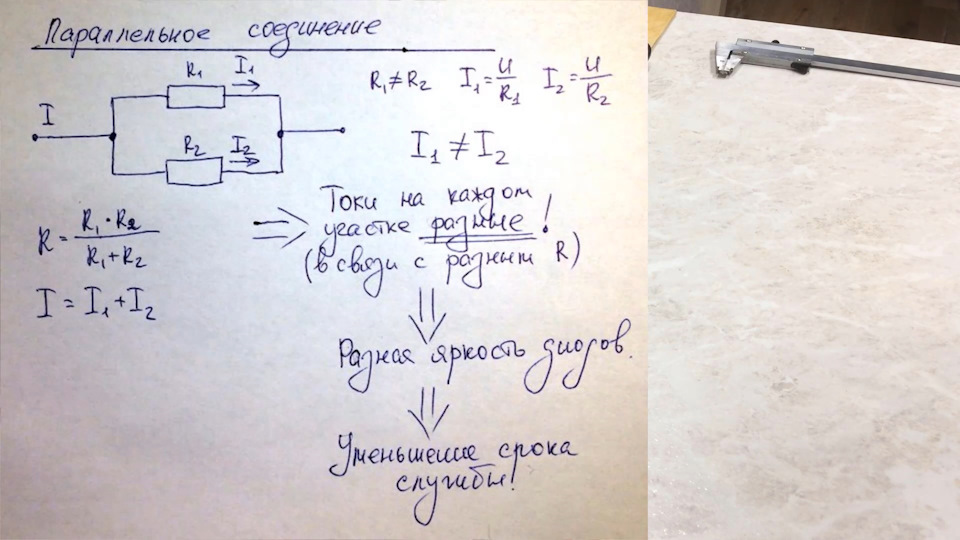 Параллельное соединение
R₁ I₁
I
R₂ I₂
R₁ ≠ R₂ I₁ = U/R₁ I₂ = U/R₂
I₁ ≠ I₂
R = R₁ · R₂ / R₁ + R₂
I = I₁ + I₂
⇒ Токи на каждом
участке разные!
(в связи с разным R)
⇓
Разная яркость диодов.
⇓
Уменьшение срока
службы!